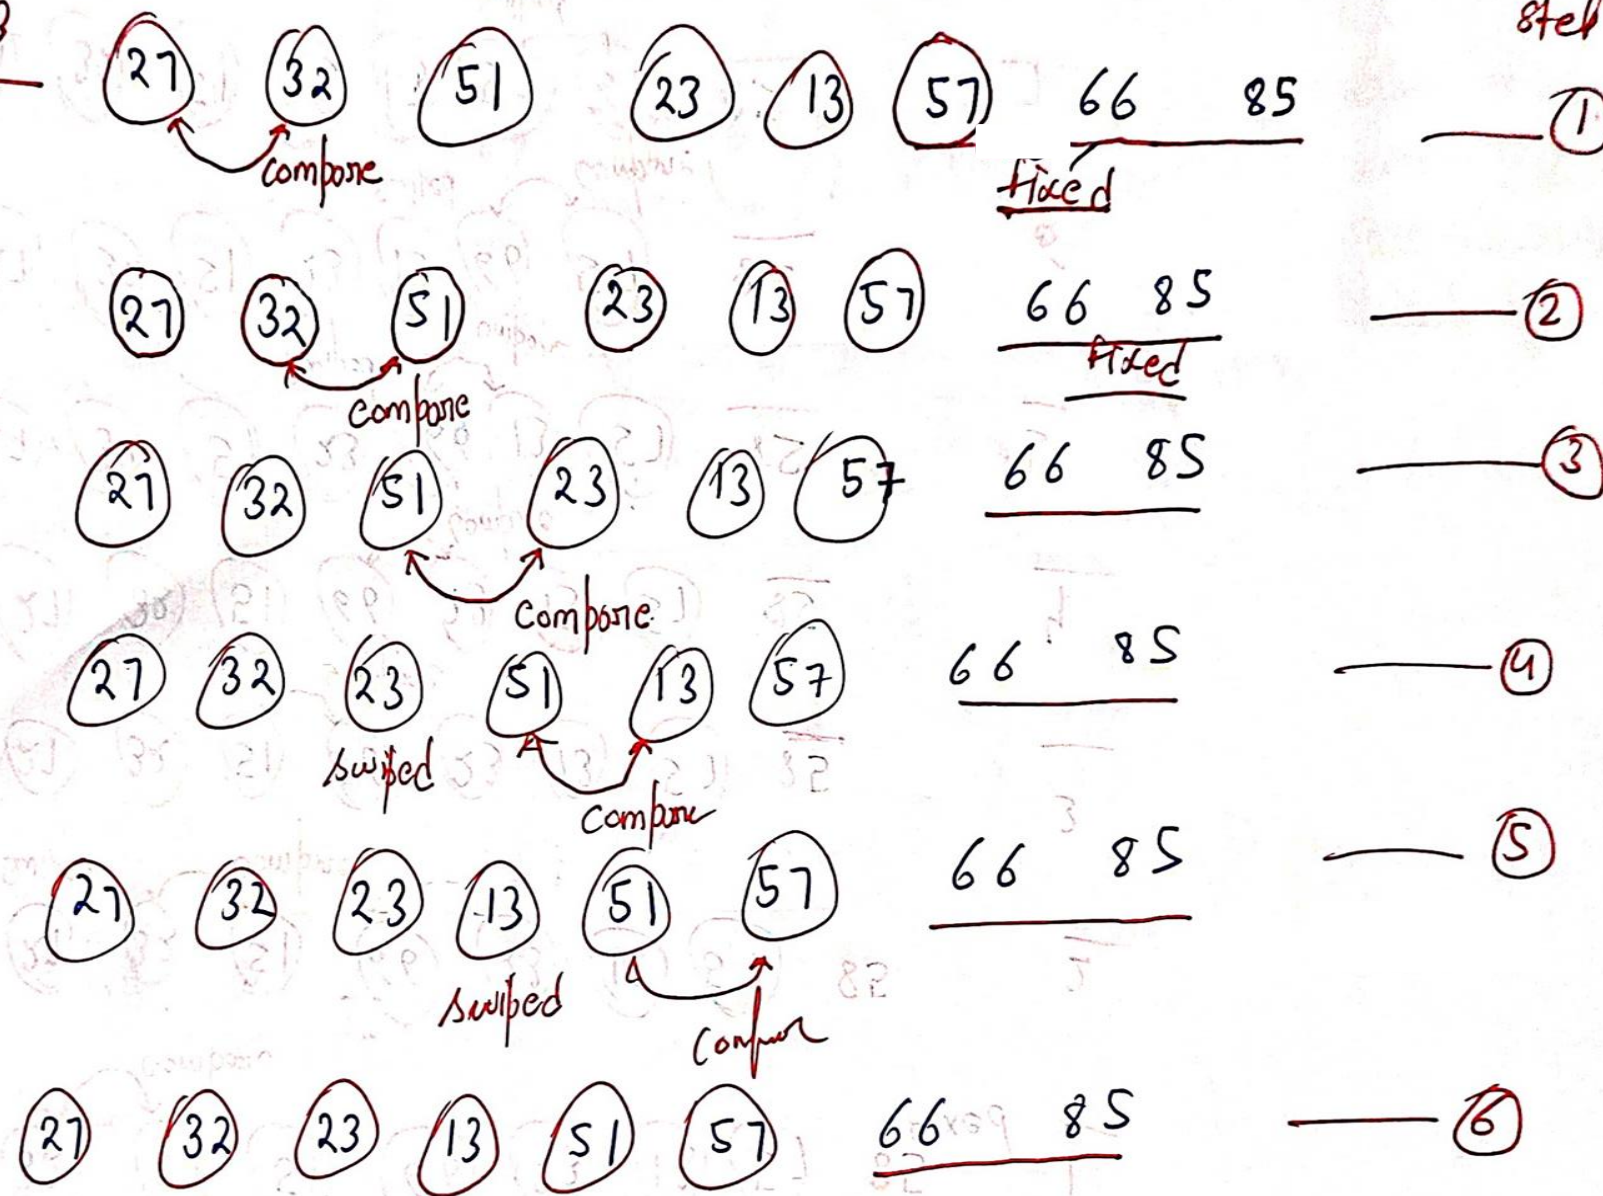 27 32 51 23 13 57 66 85 ①
compare
fixed
27 32 51 23 13 57 66 85 ②
compare
fixed
27 32 51 23 13 57 66 85 ③
compare
27 32 23 51 13 57 66 85 ④
swiped
compare
27 32 23 13 51 57 66 85 ⑤
swiped
compare
27 32 23 13 51 57 66 85 ⑥